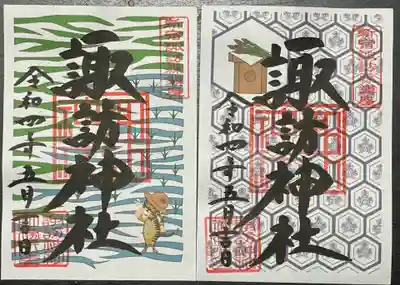 諏訪神社
令和四年五月吉日
諏訪神社
令和四年五月吉日